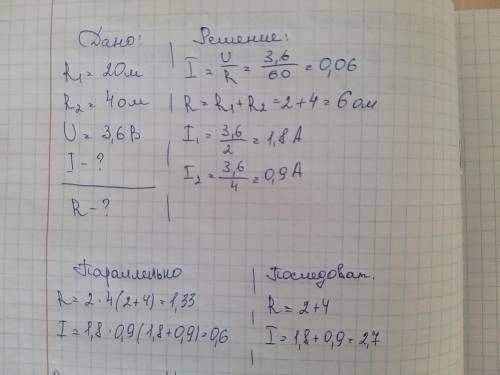 Дано:
R₁ = 2 Ом
R₂ = 4 Ом
U = 3,6 В
I - ?
R - ?
Решение:
I = U/R = 3,6/60 = 0,06
R = R₁ + R₂ = 2 + 4 = 6 Ом
I₁ = 3,6/2 = 1,8 А
I₂ = 3,6/4 = 0,9 А
Параллельно
R = 2 · 4 (2+4) = 1,33
I = 1,8 · 0,9 (1,8 + 0,9) = 0,6
Последоват.
R = 2 + 4
I = 1,8 + 0,9 = 2,7